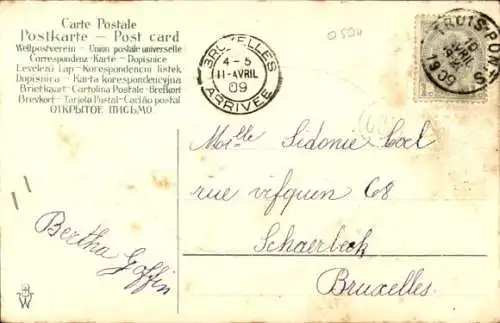 Carte Postale
Postkarte — Post card
Weltpostverein - Union postale universelle
Correspondenz-Karte - Dopisnice
Levelező Lap - Korespondenční lístek
Dopisnica - Karta korespondencyjna
Briefkaart - Cartolina Postale - Brefkort
Brevkort - Tarjeta Postal - Cartão postal
ОТКРЫТОЕ ПИСЬМО
BRUXELLES
4-5
11-AVRIL
09
ARRIVEE
0594
TROIS-PONTS
10
AVRIL
1909
1
Melle Sidonie
rue 68
Schaerbeck
Bruxelles
Bertha Goffin
W